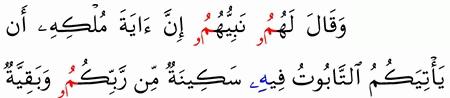 وَقَالَ لَهُمُۥ نَبِيُّهُمُۥ إِنَّ ءَايَةَ مُلْكِهِۦ أَن
يَأْتِيَكُمُ التَّابُوتُ فِيهِۦ سَكِينَةٌ مِّن رَّبِّكُمُۥ وَبَقِيَّةٌ